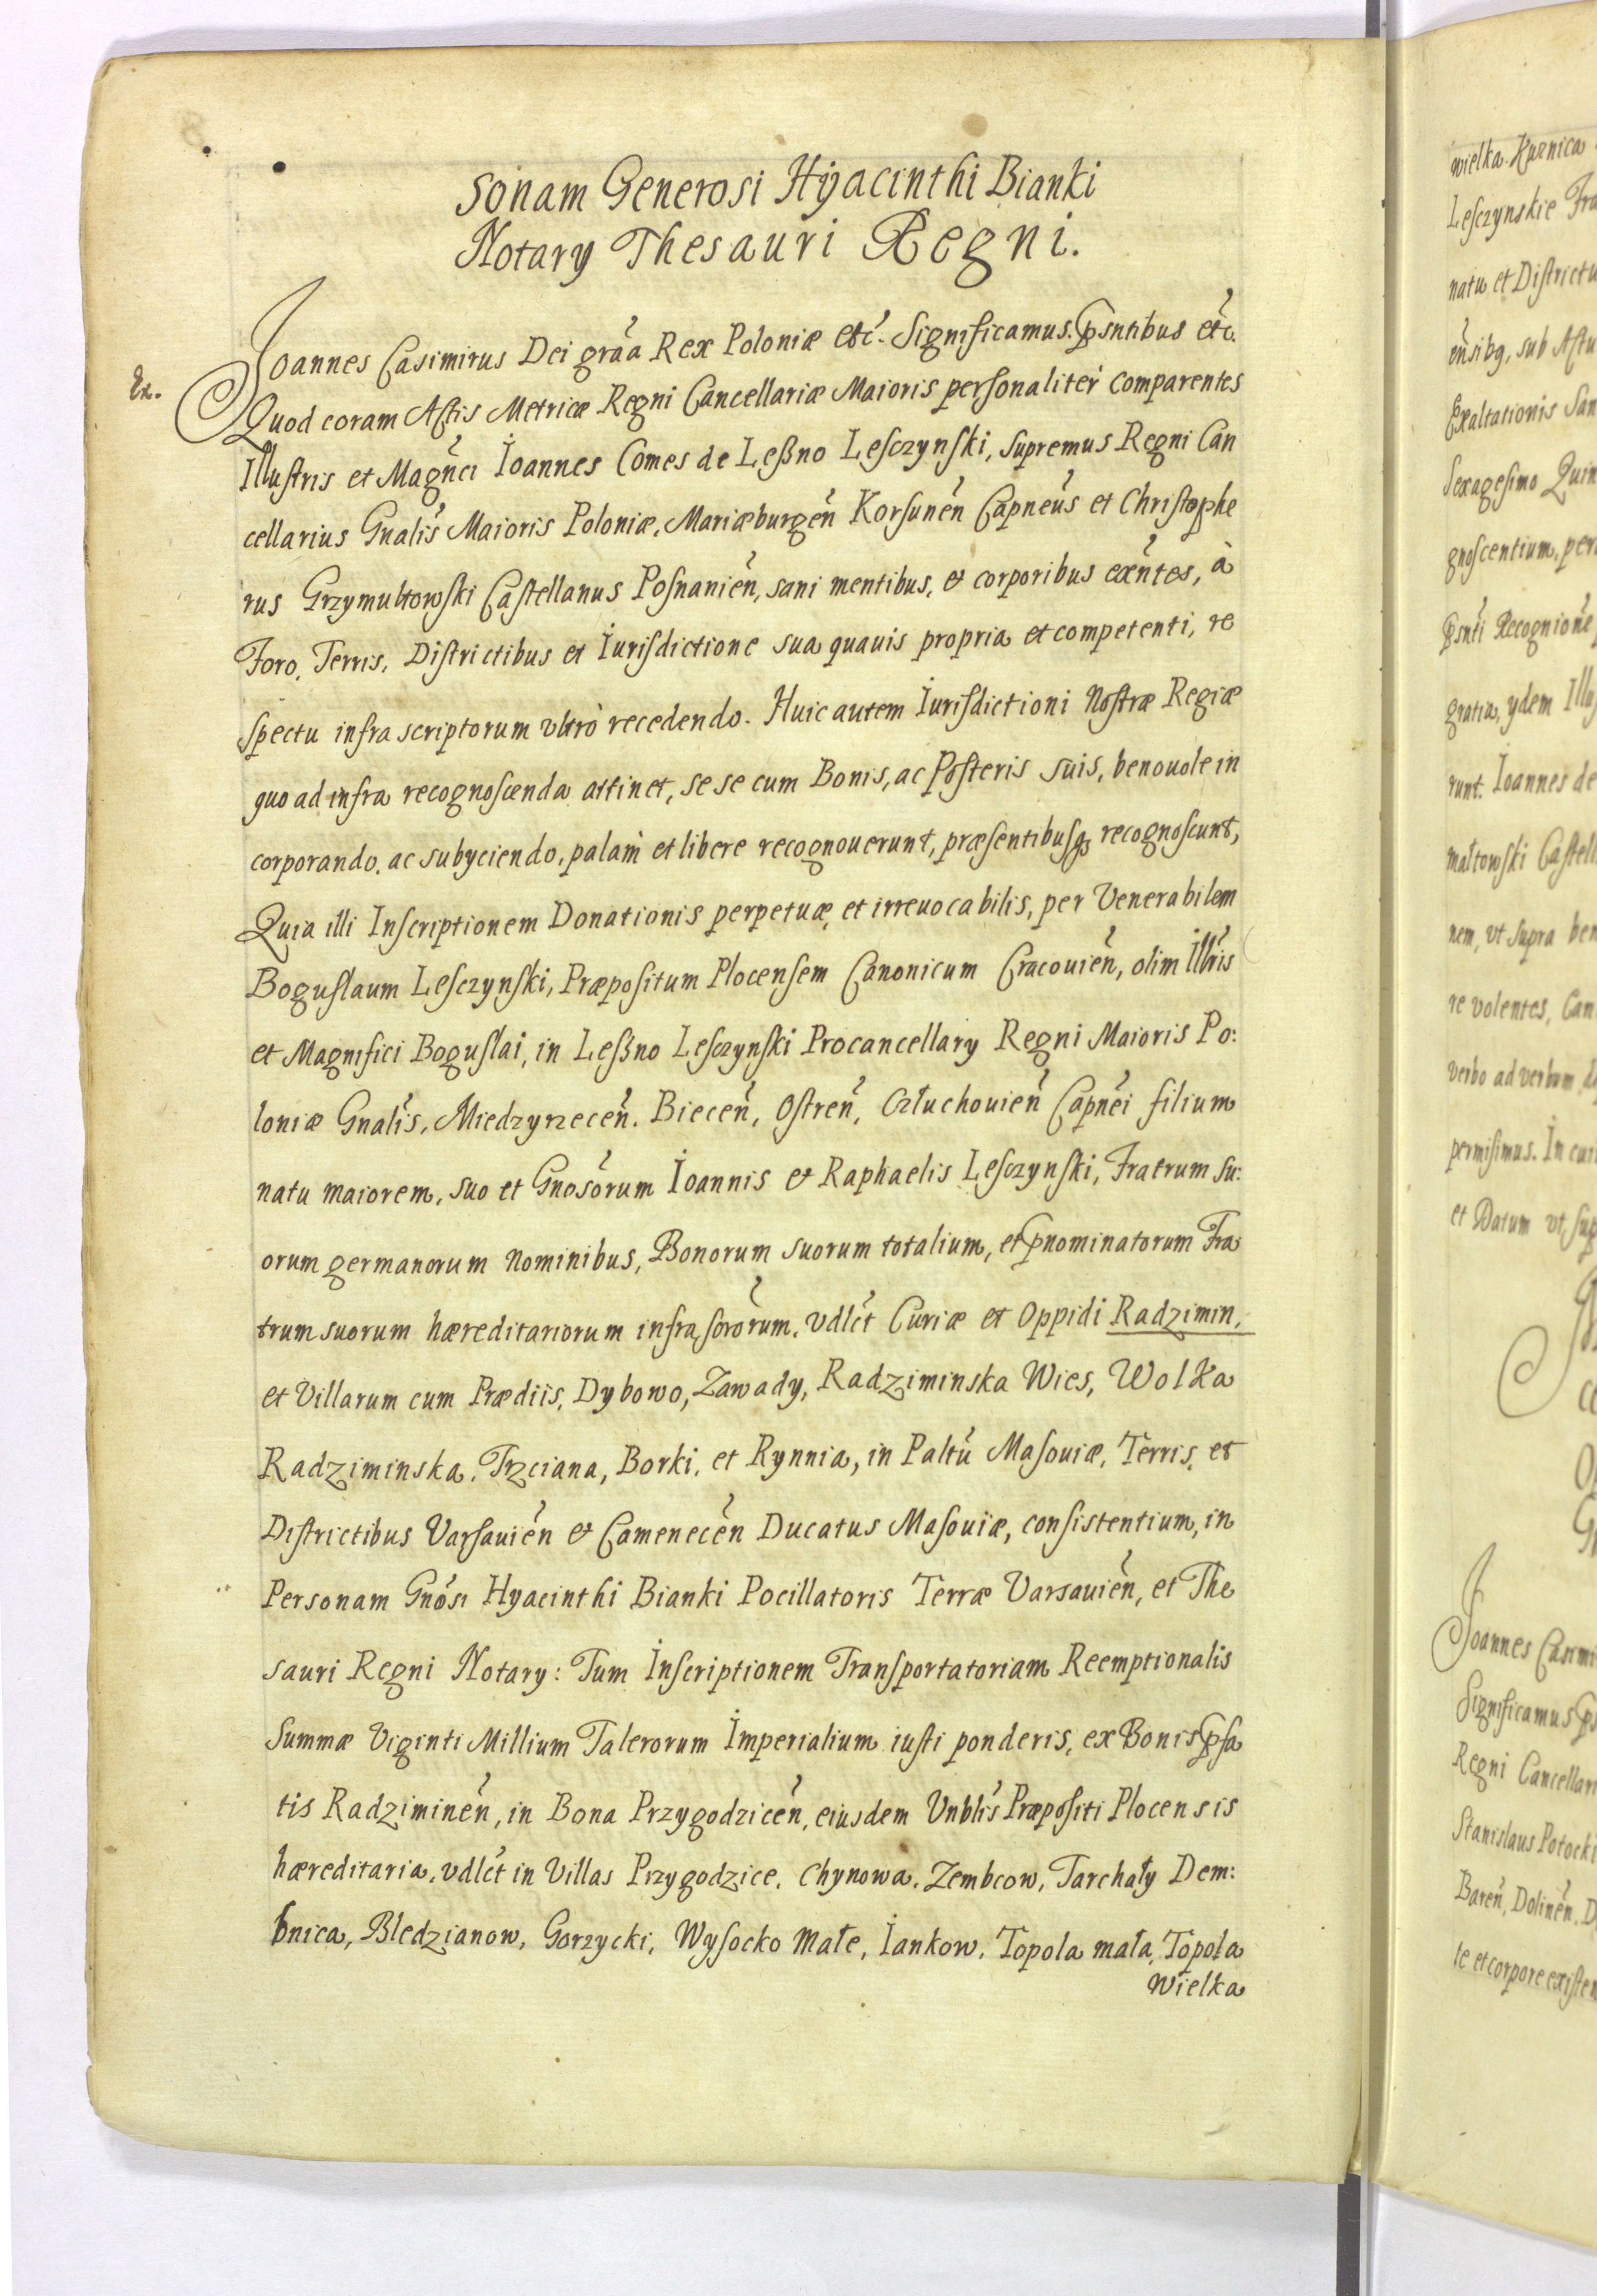 sonam Generosi Hyacinthi Bianki
Notary Thesauri Regni.
Ex.
Joannes Casimirus Dei grãa Rex Poloniæ etć. Significamus. Pşntibus etć.
Quod coram Actis Metricæ Regni Cancellariæ Maioris personaliter comparentes
Illustris et Magnĉi Ioannes Comes de Leßno Lesczynski, supremus Regni Can
cellarius Gnalis Maioris Poloniæ, Mariæburgeñ Korsuneñ Capneus et Christophe
rus Grzymułtowski Castellanus Posnanieñ, sani mentibus, et corporibus exeñtes, à
Foro, Terris, Districtibus et Iurisdictione sua quauis propria et competenti, re
spectu infra scriptorum vltrò recedendo. Huic autem Iurisdictioni Nostræ Regiæ
quo ad infra recognoscenda attinet, se se cum Bonis, ac Posteris suis, beneuole in
corporando, ac subyciendo, palam et libere recognouerunt, præsentibusq recognoscunt,
Quia illi Inscriptionem Donationis perpetuæ, et irreuocabilis, per Venerabilem
Boguslaum Lesczynski, Præpositum Plocensem Canonicum Cracouieñ, olim Illris
et Magnifici Boguslai, in Leßno Lesczynski Procancellary Regni Maioris Po:
loniæ Gnalis, Miedzyrzeceñ. Bieceñ, Ostreñ, Człuchouieñ Capnei filium
natu maiorem, suo et Gnosorum Ioannis et Raphaelis Lesczynski, Fratrum su:
orum germanorum nominibus, Bonorum suorum totalium, et Pnominatorum Fra
trum suorum hæreditariorum infra scrorum, vdlet Curiæ et Oppidi Radzimin,
et Villarum cum Prædiis, Dybowo, Zawady, Radziminska Wies, Wolka
Radziminska, Trzciana, Borki, et Rynnia, in Paltu Masouiæ, Terris, et
Districtibus Varsauień et Cameneceń Ducatus Masouiæ, consistentium, in
Personam Gnosi Hyacinthi Bianki Pocillatoris Terræ Varsauień, et The
sauri Regni Notary: Tum Inscriptionem Transportatoriam Reemptionalis
Summæ Viginti Millium Talerorum Imperialium iusti ponderis, ex Bonis Psa
tis Radzimineń, in Bona Przygodziceń, eiusdem Vnblis Præpositi Plocensis
hæreditaria, vdlet in Villas Przygodzice, Chynowa, Zembcow, Tarchały Dem:
bnica, Bledzianow, Gorzycki, Wysocko Małe, Iankow, Topola mała, Topola
Wielka
wielka Kuznica
Lesczynskie Fra
natu et Districtu
ensibq, sub Actu
Exaltationis San
Sexagesimo Quin
gnoscentium, per
Psnti Recognione
gratia, ydem Illu
runt. Ioannes de
małtowski Castell
nem, vt supra ben
re volentes, Can
verbo ad verbum
permisimus. In cui
et Datum vt sup
Joannes Casimi
Significamus Ps
Regni Cancellari
Stanislaus Potocki
Bareń, Dolineń, D
te et corpore existen